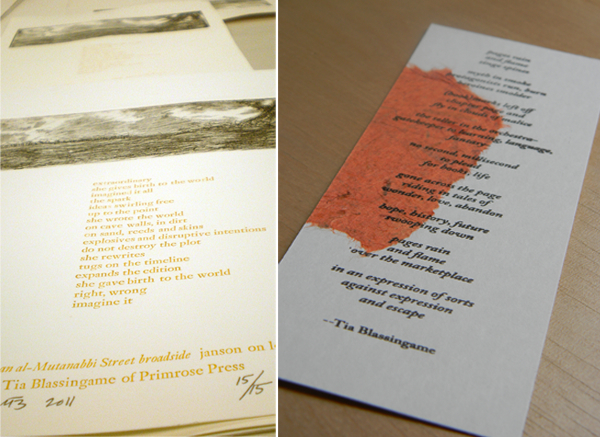 extraordinary
she gives birth to the world
imagined it all
the spark
ideas swirling free
up to the point
she wrote the world
on cave walls, in dirt
on sand, reeds and skins
explosives and disruptive intentions
do not destroy the plot
she rewrites
tugs on the timeline
expands the edition
she gave birth to the world
right, wrong
imagine it
an al-Mutanabbi Street broadside janson on
Tia Blassingame of Primrose Press
2011 15/15
pages rain
and flame
sings
myth in smoke
rain, burn
smolder
left off
fly
gatekeeper to learning, language,
fantasy
no second, millisecond
to
for books, life
gone across the page
riding in tales of
wonder, love, abandon
hope, history, future
swooping down
pages rain
and flame
over the marketplace
in an expression of sorts
against expression
and escape
--Tia Blassingame